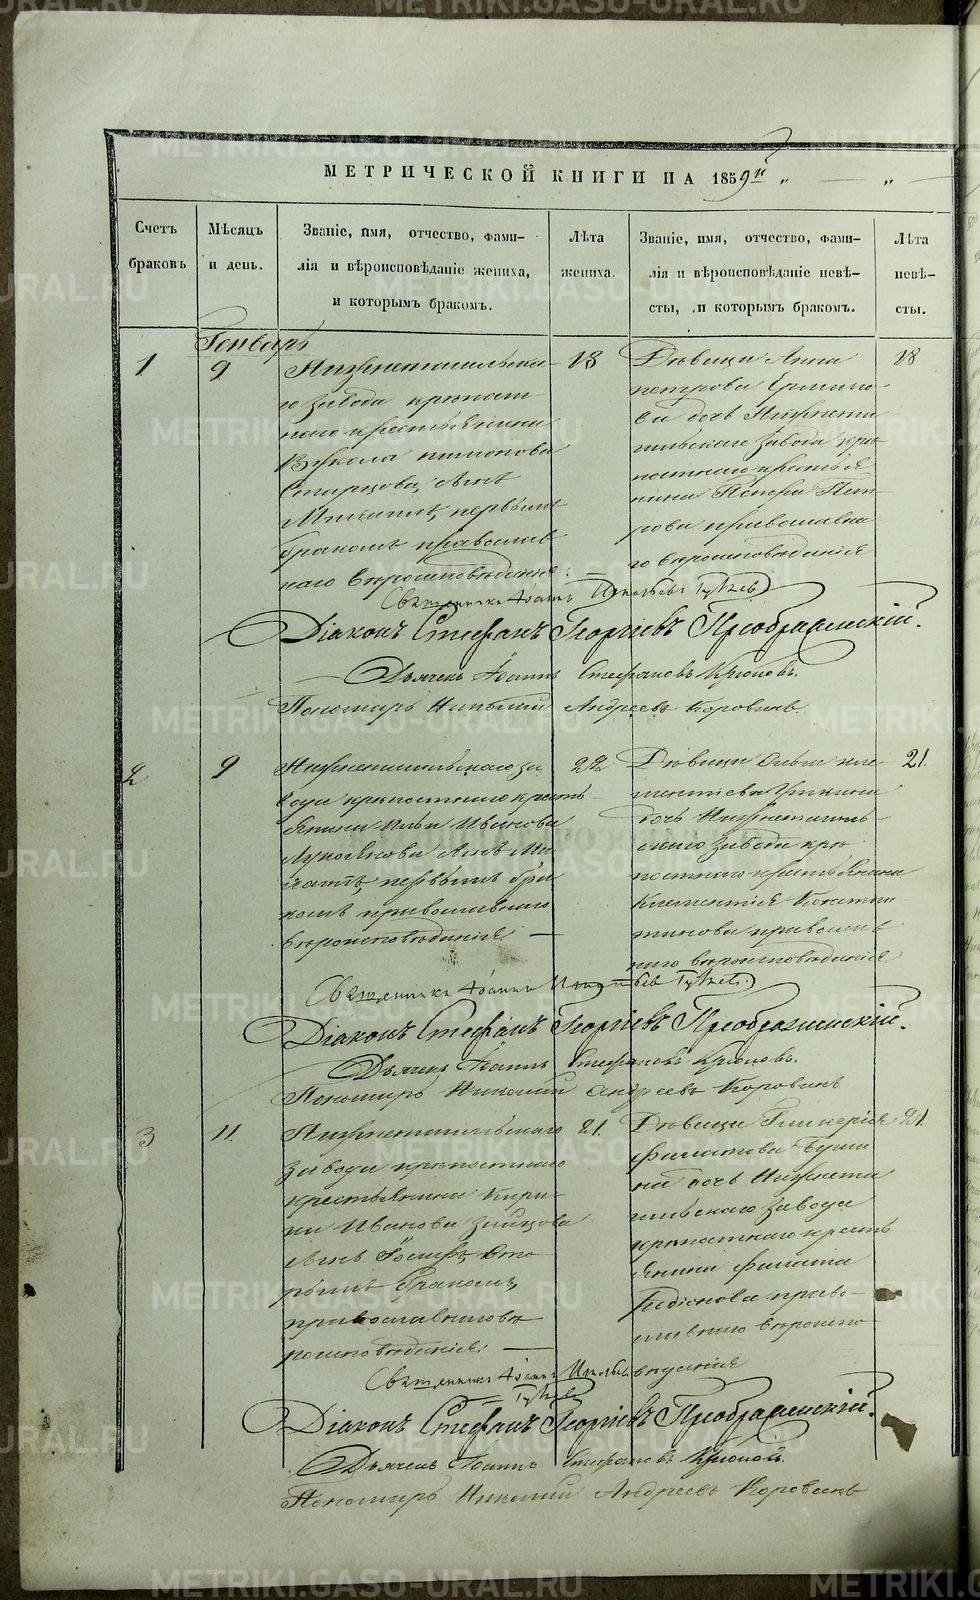 МЕТРИЧЕСКОЙ КНИГИ НА 1859й
Счетъ браковъ
Мѣсяцъ и день.
Званіе, имя, отчество, фами-
лія и вѣроисповѣданіе жениха,
и которымъ бракомъ.
Лѣта жениха.
Званіе, имя, отчество, фами-
лія и вѣроисповѣданіе невѣ-
сты, и которымъ бракомъ.
Лѣта невѣ-
сты.
Генварь
1
9
Нижнетагильска-
го завода крѣпост
наго крестьянина
сынъ
Михаилъ, первымъ
бракомъ православ
наго вѣроисповѣданія.
18
Дѣвица Анна
петрова
ва дочь Нижнета
гильскаго завода крѣ
постнаго крестья
нина Петра Пет
рова православна
го вѣроисповѣданія
18
Священникъ Іоаннъ
Діаконъ Стефанъ Георгіевъ Преображенскій.
Дьячекъ Іоаннъ Стефановъ Крюковъ.
Пономарь Николай Андреевъ Коровинъ
2
9
Нижнетагильскаго за
вода крѣпостнаго кресть
янина Ильи Иванова
Лукоянова сынъ Ми
хаилъ, первымъ бра
комъ православнаго
вѣроисповѣданія.
22
Дѣвица Ольга кле
ментьева
дочь Нижнетагиль
скаго завода крѣ
постнаго крестьянина
Клементія Констан
тинова православ
наго вѣроисповѣданія
21.
Священникъ Іоаннъ
Діаконъ Стефанъ Георгіевъ Преображенскій.
Дьячекъ Іоаннъ Стефановъ Крюковъ.
Пономарь Николай Андреевъ Коровинъ
3
11.
Нижнетагильскаго
завода крѣпостнаго
крестьянина Кири-
ла Иванова Зайцова
сынъ Іосифъ, вто
рымъ бракомъ,
православнаго вѣ
роисповѣданія.
21.
Дѣвица Гликерія
филатова
на дочь Нижнета
гильскаго завода
крѣпостнаго кресть
янина филата
право-
славнаго вѣроиспо
вѣданія
21.
Священникъ Іоаннъ
Діаконъ Стефанъ Георгіевъ Преображенскій.
Дьячекъ Іоаннъ Стефановъ Крюковъ.
Пономарь Николай Андреевъ Коровинъ
METRIKI.GASO-URAL.RU